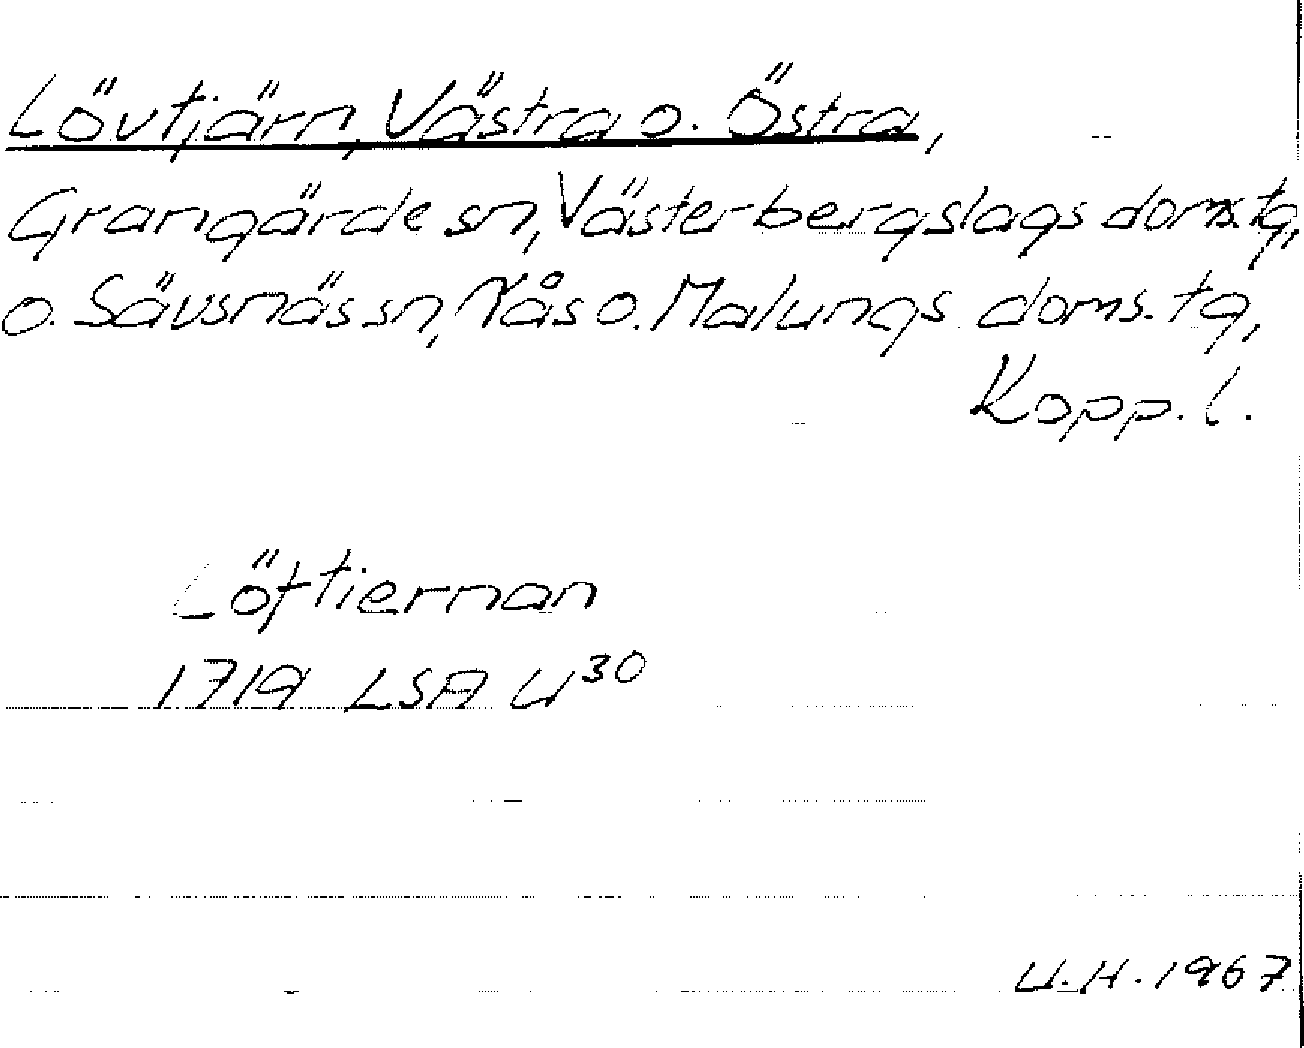 Lövtjärn, Västra o. Östra,
Grangärde sn, Västerbergslags doms. tg,
o. Sävsnäs sn, Nås o. Malungs doms. tg,
Kopp. l.
Löftiernan
1719 LSA U³⁰
U.H. 1967